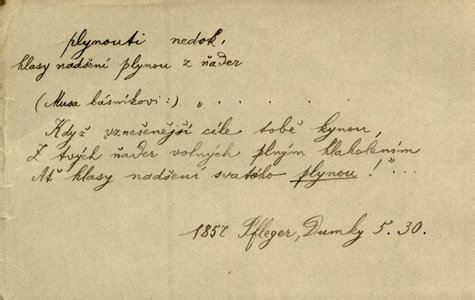 plynouti nedok.
hlasy nadšení plynou z ňader
(Musa básníkovi:) „ . . . . . .
Když vznešenější cíle tobě kynou,
Z tvých ňader volných plným hlaholením
Ať hlasy nadšení svatého plynou!" ...
1857 Pfleger, Dumky 5. 30.